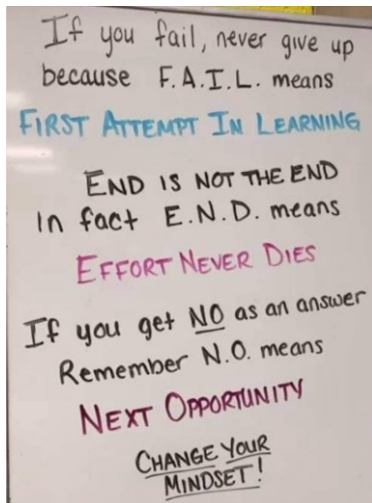 If you fail, never give up
because F.A.I.L. means
FIRST ATTEMPT IN LEARNING
END IS NOT THE END
In fact E.N.D. means
EFFORT NEVER DIES
If you get NO as an answer
Remember N.O. means
NEXT OPPORTUNITY
CHANGE YOUR
MINDSET!